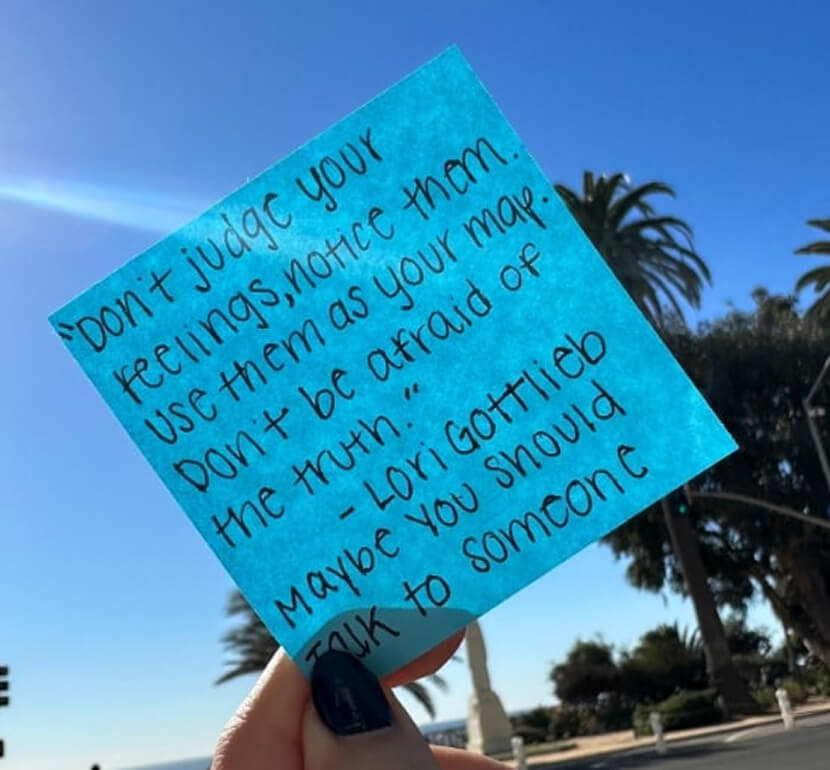 "Don't judge your
feelings, notice them.
Use them as your map.
Don't be afraid of
the truth."
- Lori Gottlieb
Maybe You Should
Talk to Someone